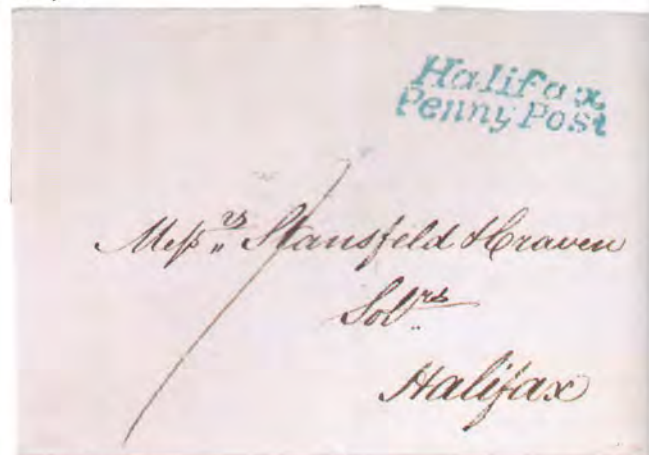 Halifax
Penny Post
Messrs Stansfeld & Craven
Solrs
Halifax